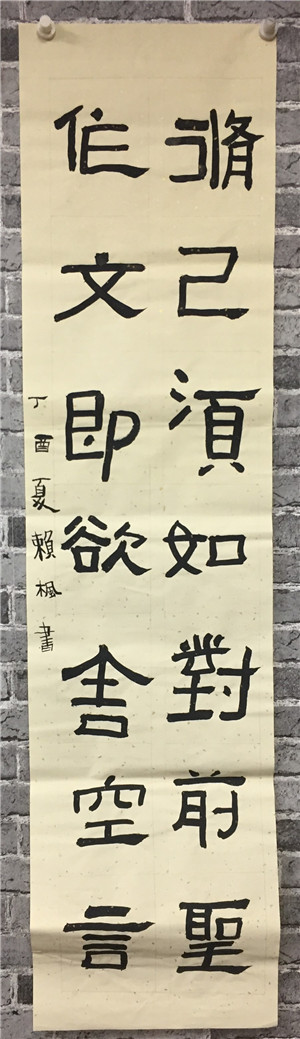 脩己須如對前聖
作文即欲舍空言
丁酉夏賴楓書